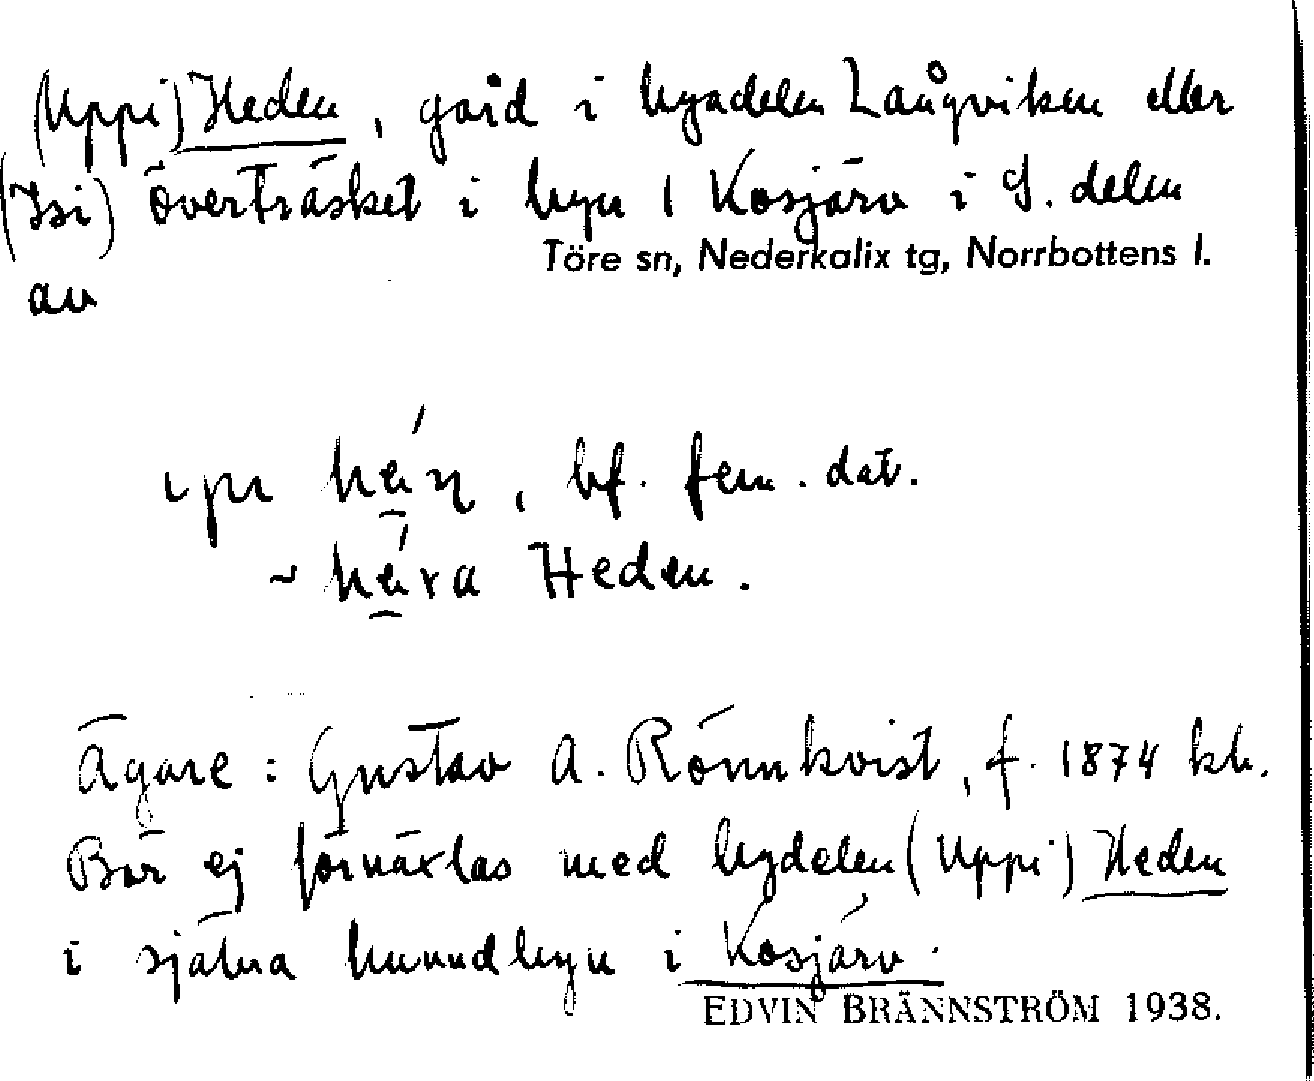 (Uppi) Heden, gård i byadelen Långviken eller
(Isi) Överträsket i byn i Kosjärv i S. delen
Töre sn, Nederkalix tg, Norrbottens l.
av
bf. fem. dat.
~ Heden.
Ägare: Gustav A. Rönnkvist, f. 1874 kb.
Bör ej förväxlas med bydelen (Uppi) Heden
i själva huvudbyn i Kosjärv.
EDVIN BRÄNNSTRÖM 1938.